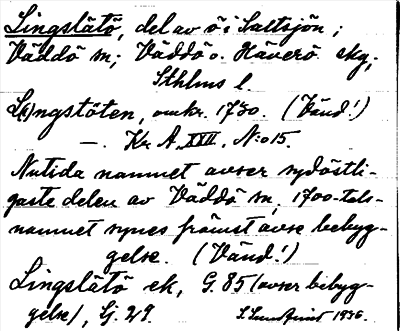 Lingslätö, del av ö i Saltsjön;
Väddö sn; Väddö o. Häverö skg;
Sthlms l.
L(i)ngstöten, omkr. 1730. (Vänd!)
—. Kr. A. XXII, No 15.
Nutida namnet avser sydöstli-
gaste delen av Väddö sn, 1700-tals-
namnet synes främst avse bebyg-
gelse. (Vänd!)
Lingslätö ek, G. 85 (avser bebyg-
gelse), Gj. 29.
1936.